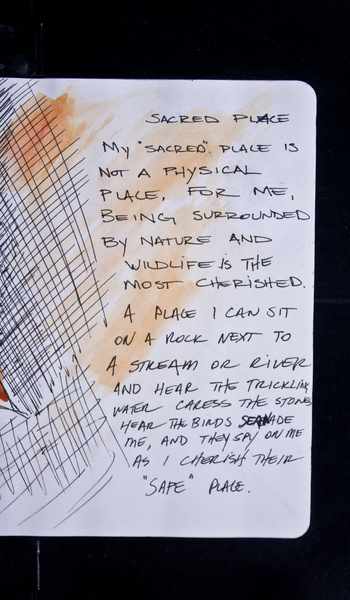 SACRED PLACE
My "SACRED" PLACE IS
NOT A PHYSICAL
PLACE, FOR ME,
BEING SURROUNDED
BY NATURE AND
WILDLIFE IS THE
MOST CHERISHED.
A PLACE I CAN SIT
ON A ROCK NEXT TO
A STREAM OR RIVER
AND HEAR THE TRICKLING
WATER CARESS THE STONES
HEAR THE BIRDS
ME, AND THEY SPY ON ME
AS I CHERISH THEIR
"SAFE" PLACE.